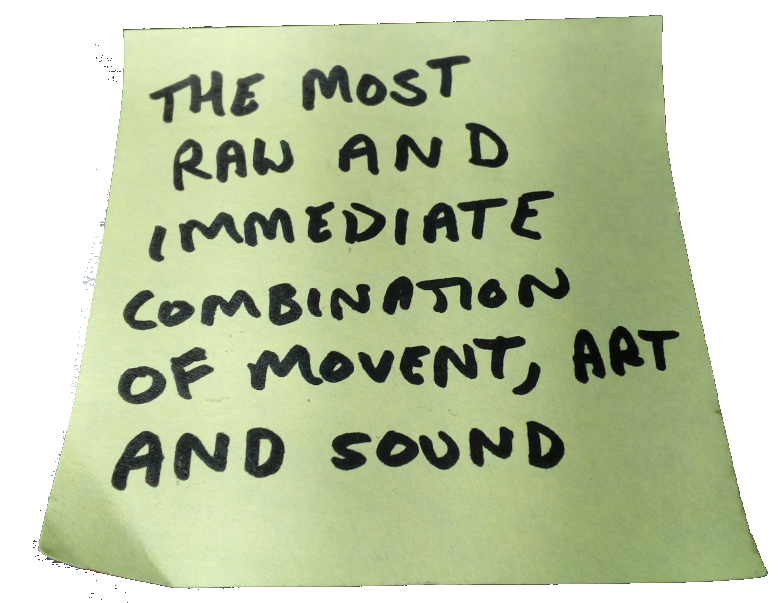 THE MOST
RAW AND
IMMEDIATE
COMBINATION
OF MOVENT, ART
AND SOUND